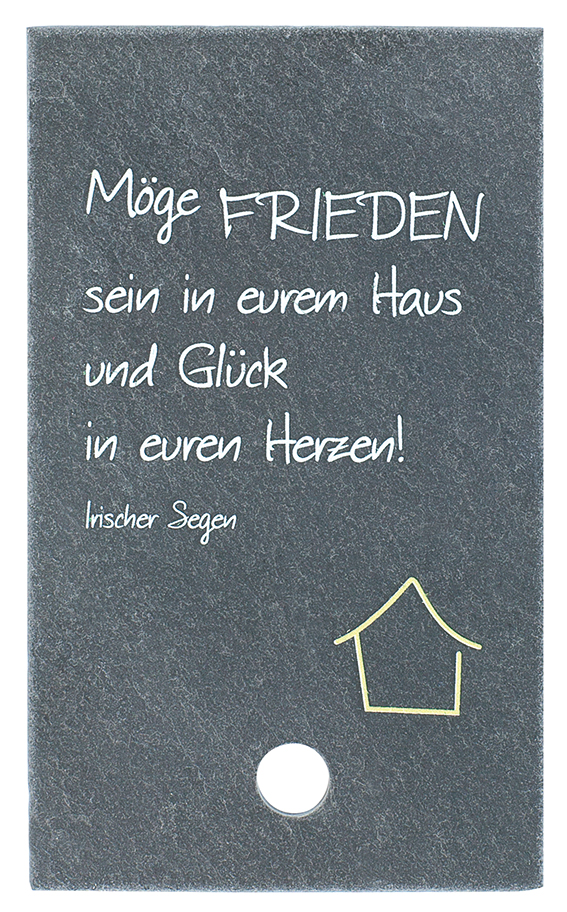 Möge FRIEDEN
sein in eurem Haus
und Glück
in euren Herzen!
Irischer Segen